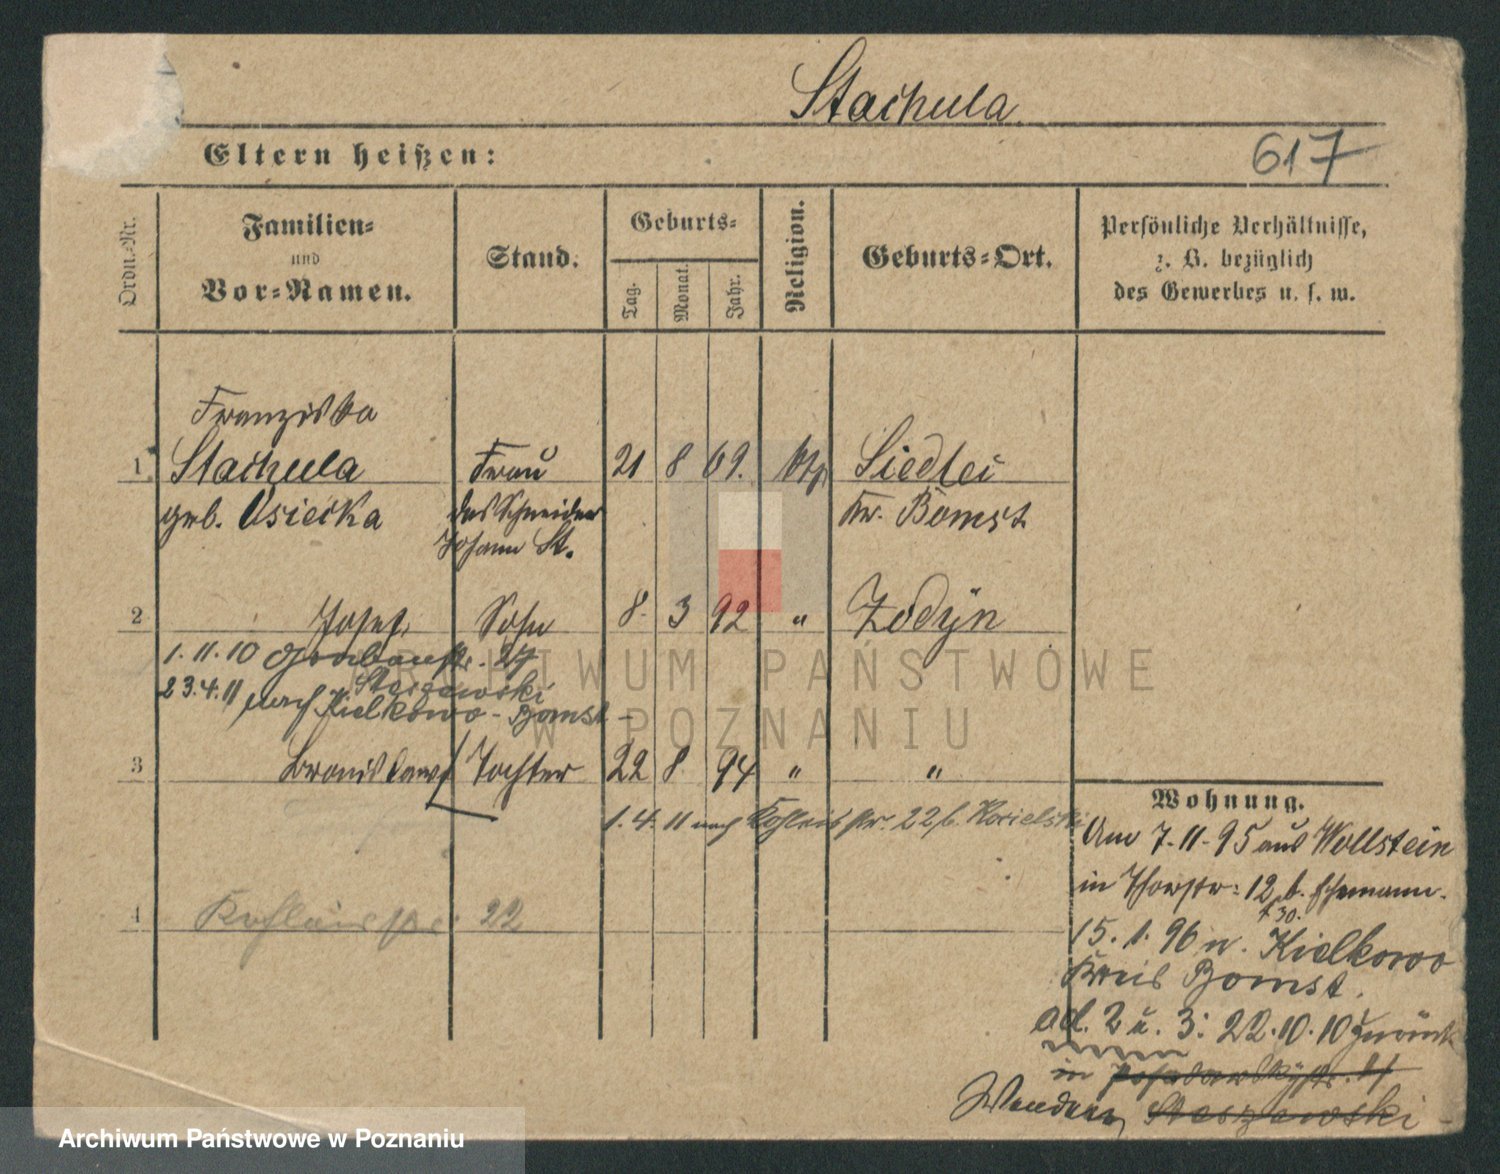 Stachula
617
Eltern heißen:
Ordn.-Nr.
Familien-
und
Vor-Namen.
Stand.
Geburts-
Tag.
Monat.
Jahr.
Religion.
Geburts-Ort.
Persönliche Verhältnisse,
z. B. bezüglich
des Gewerbes u. s. w.
Franziska
1 Stachula Frau 21 8 69. ktp Siedlec
geb. Osiecka des Schneider Kr. Bomst
Johann St.
2 Josef, Sohn 8. 3 92 " Zodyn
1.11.10 27
Staszewski
23.4.11 nach Kielkowo - Bomst -
3 Bronislawa Tochter 22 8 94 " "
1.4.11 nach Kohleisstr. 22 b. Kozielski
4 Kohleisstr. 22
Wohnung.
Am 7.11.95 aus Wollstein
in Thorstr: 12 b. Ehemann.
15.1.96 n. Kielkowo
Kreis Bomst.
ad. 2 u. 3: 22.10.10 zurück
in Posadowskystr. 11
Wenden Staszewski -
ARCHIWUM PAŃSTWOWE
W POZNANIU
Archiwum Państwowe w Poznaniu